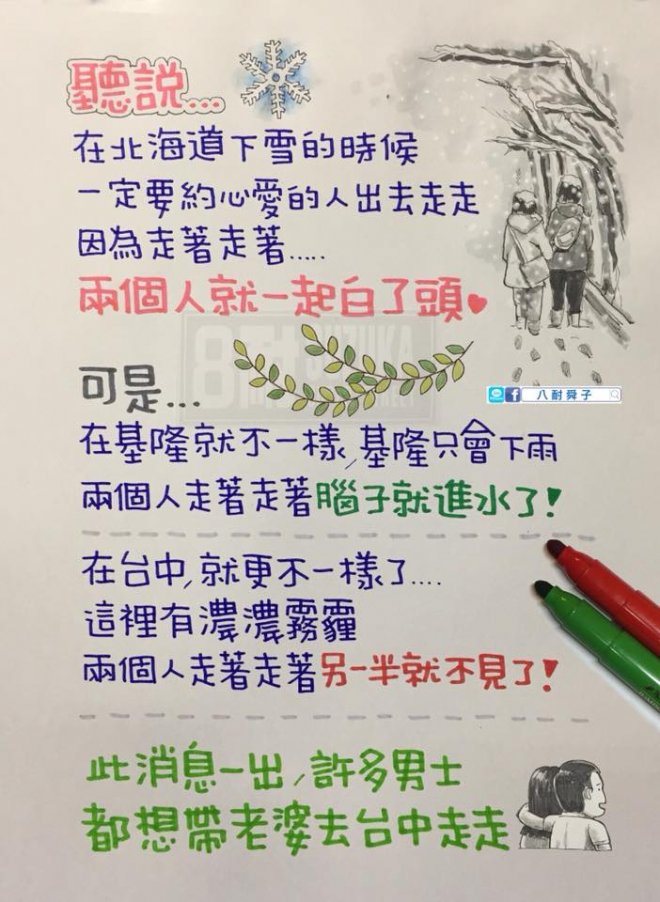 聽說...
在北海道下雪的時候
一定要約心愛的人出去走走
因為走著走著.....
兩個人就一起白了頭
八耐舜子
可是...
在基隆就不一樣,基隆只會下雨
兩個人走著走著腦子就進水了!
在台中,就更不一樣了....
這裡有濃濃霧霾
兩個人走著走著另一半就不見了!
此消息一出,許多男士
都想帶老婆去台中走走